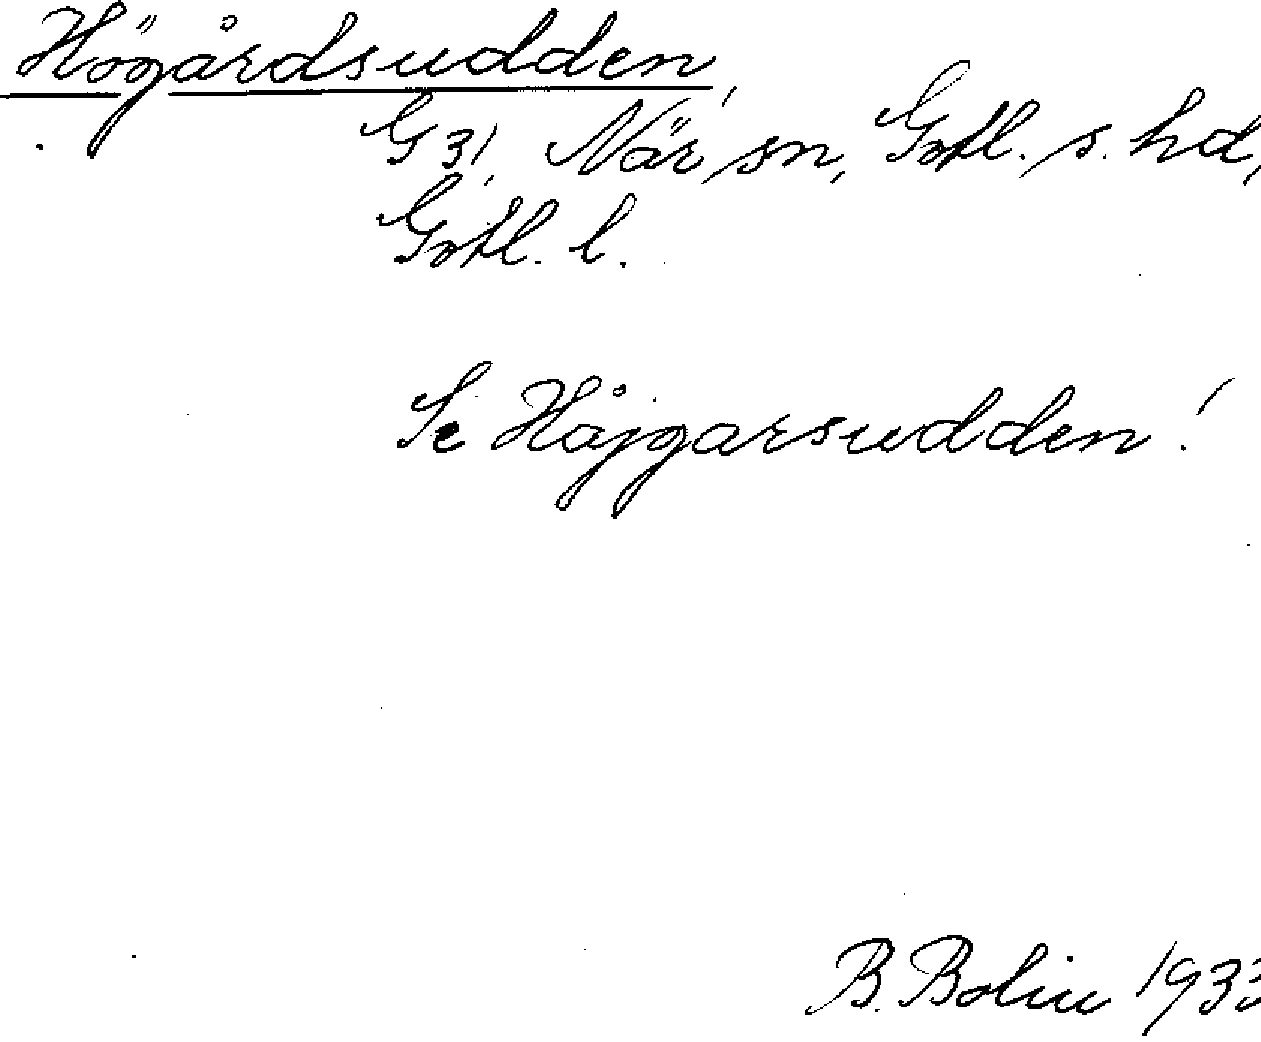 Högårdsudden,
G 31, När sn, Gotl. s. hd,
Gotl. l.
Se Håjgarsudden!
B. Bolin 1933